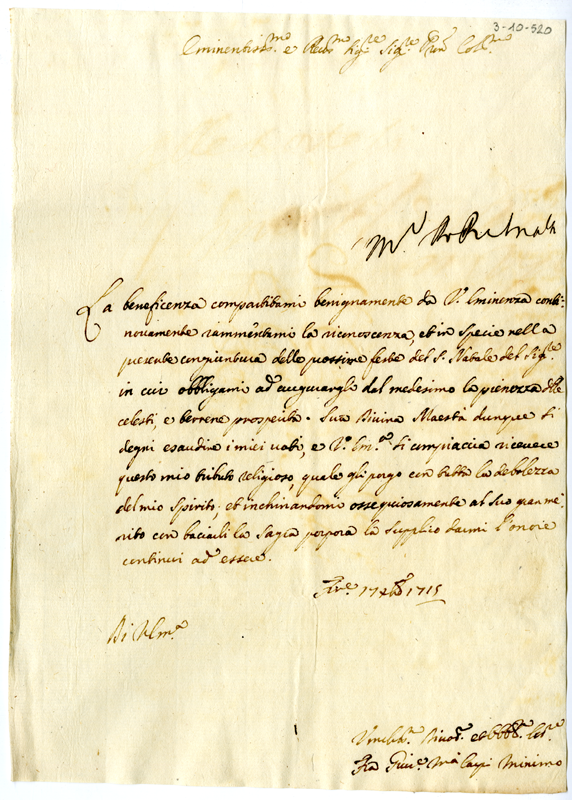 3-10-520
Eminentiss.mo e Rev.mo Sig.re Sig.re Pron Col.mo
La beneficenza compartitami benignamente da V.ª Eminenza conti=
novamente rammentami la riconoscenza, et in specie nella
presente congiuntura delle prossime feste del S. Natale del Sig.re
in cui obbligami ad augurargli dal medesimo la pienezza delle
celesti e terrene prosperità. Sua Divina Maestà dunque si
degni esaudire i miei voti, e V.ª Em.ª si compiaccia ricevere
questo mio tributo religioso, quale gli porgo con tutta la debolezza
del mio spirito; et inchinandomi ossequiosamente al suo gran me=
rito con baciarli la Sagra porpora la supplico darmi l'onore
continui ad essere.
17 Xbre 1715
Di V. Em.ª
Umiliss.º Divot.º et Obb. Se.
Fra Minimo